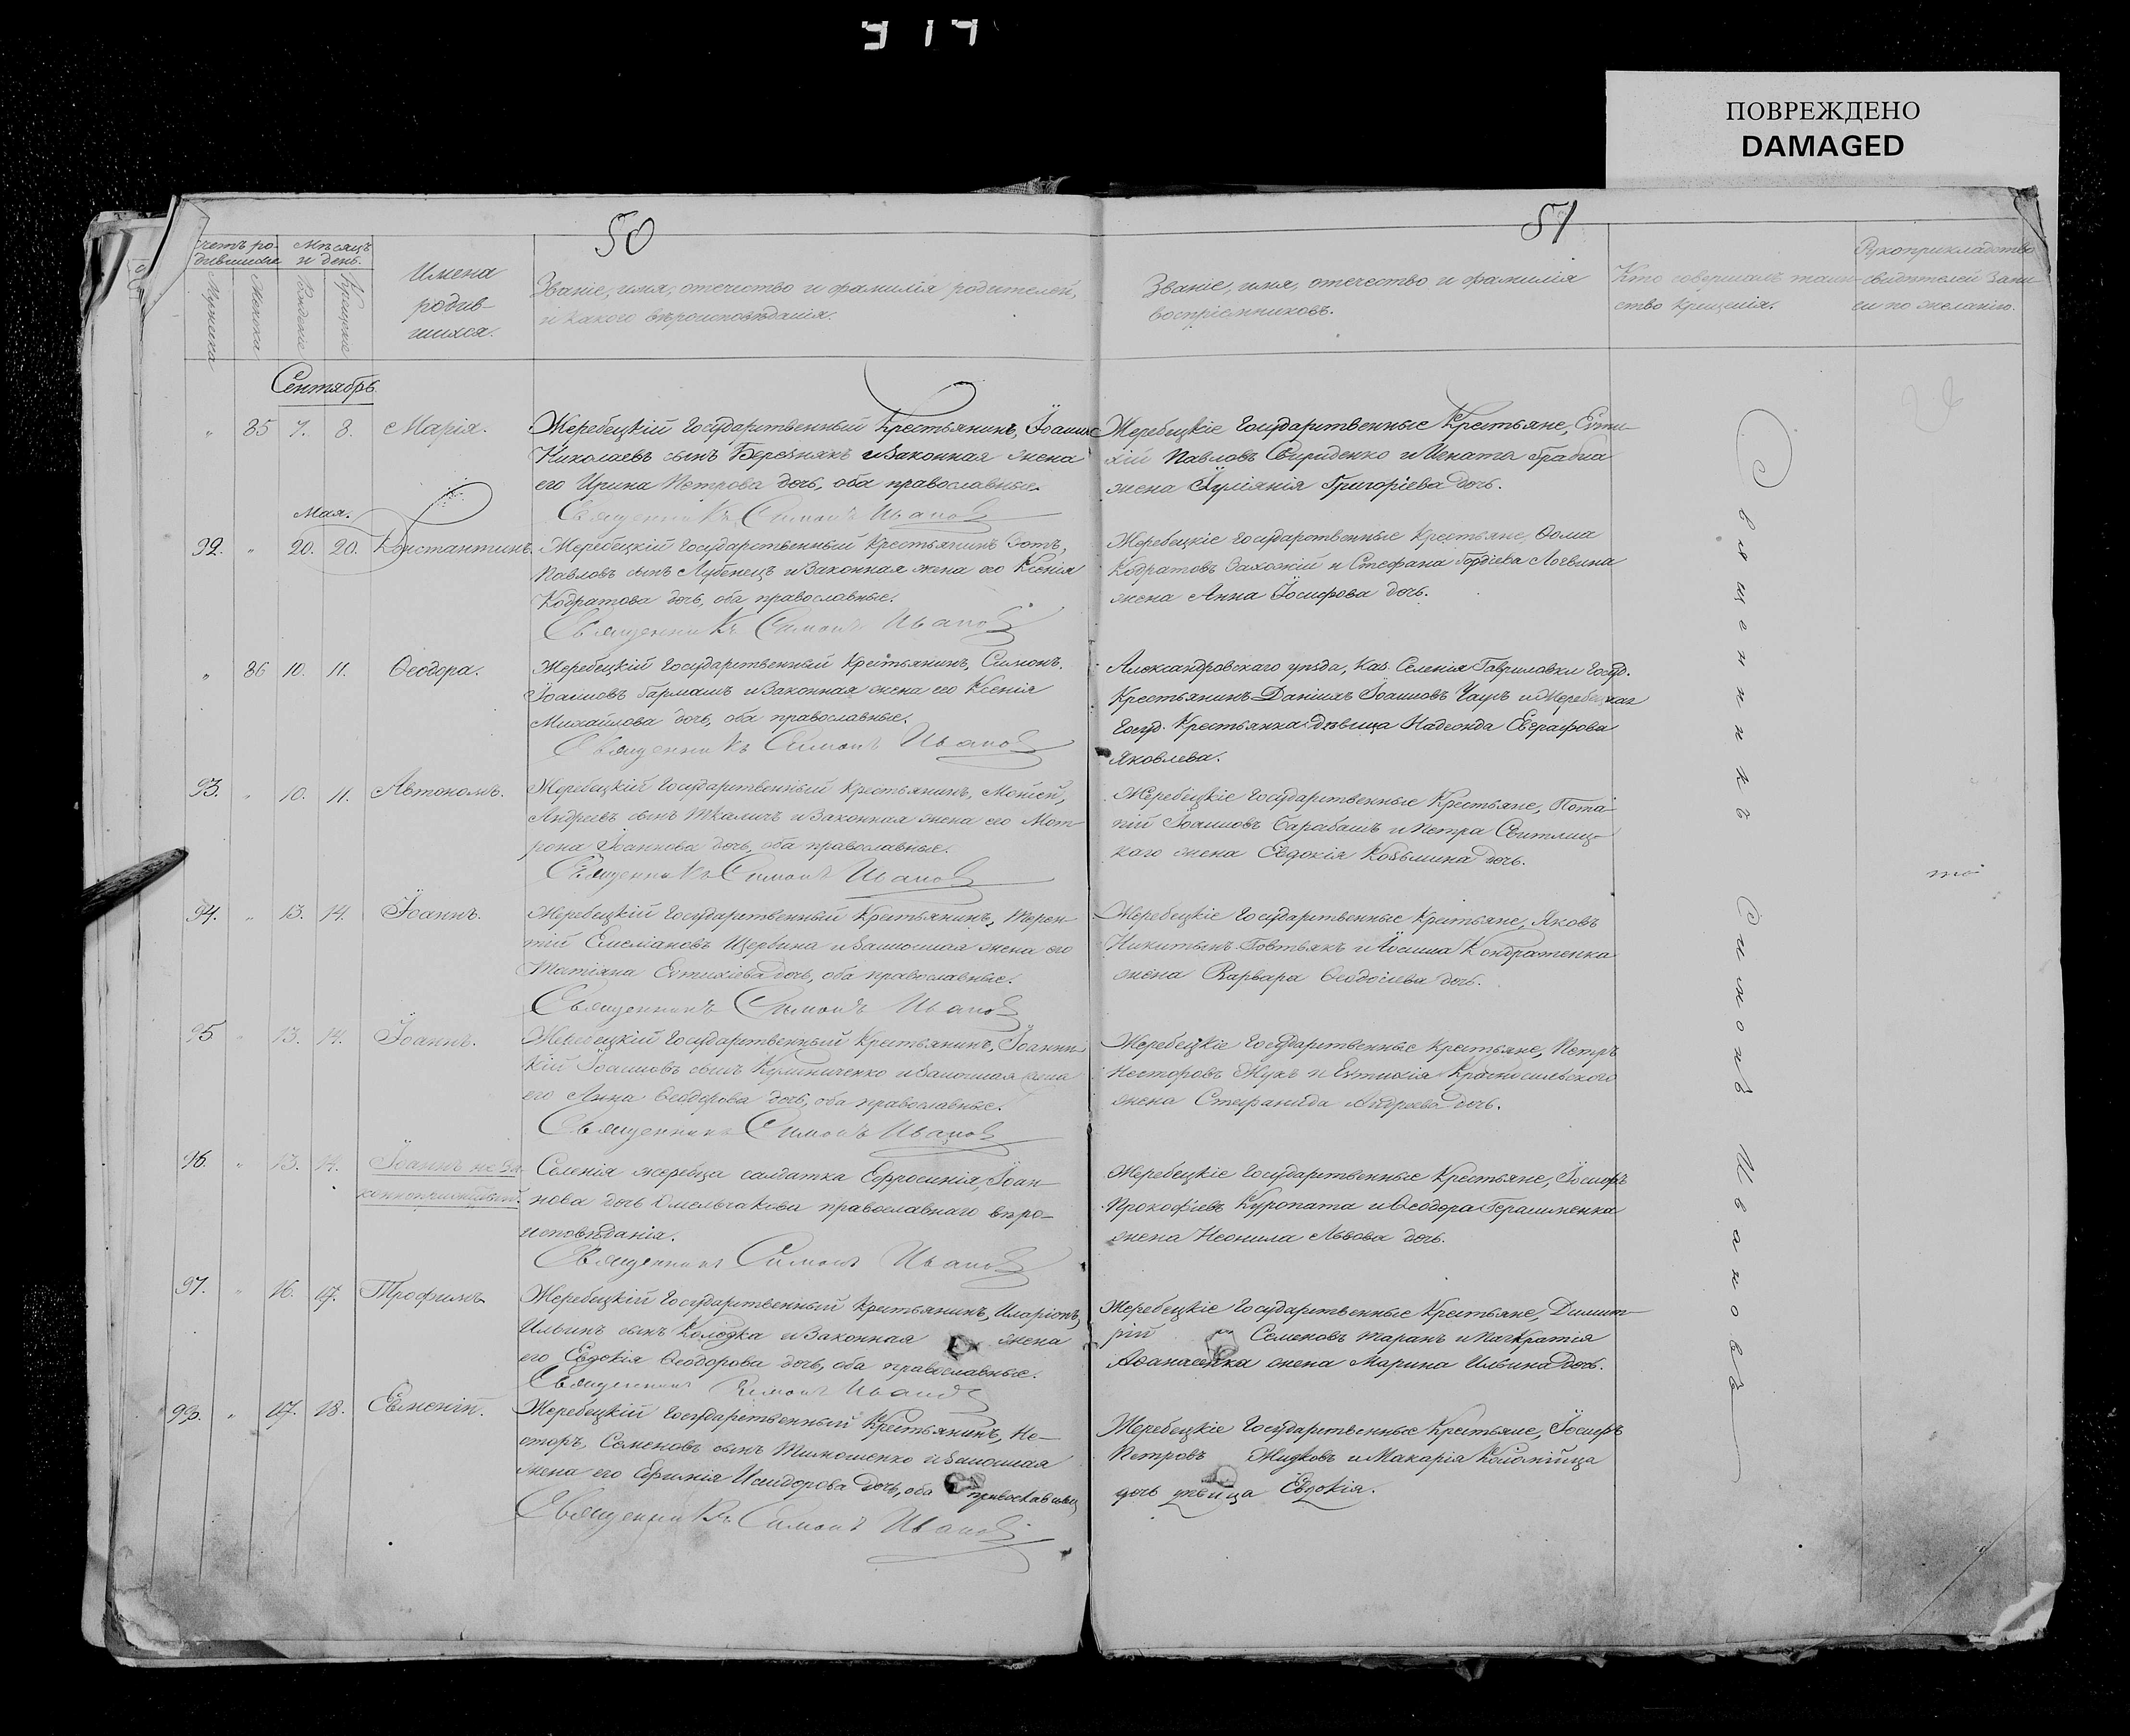 ПОВРЕЖДЕНО
DAMAGED
50
51
Счетъ ро-
дившихся
Мѣсяцъ
и день.
Мужеска
Женска
Рожденіе
Крещеніе
Имена
родив-
шихся.
Званіе, имя, отечество и фамилія родителей,
и какого вѣроисповѣданія.
Званіе, имя, отечество и фамилія
воспріемниковъ.
Кто совершалъ таин-
ство крещенія.
Рукоприкладство
свидѣтелей запи-
си по желанію.
Сентябрь
" 85 7. 8. Марія.
Жеребецкій Государственный Крестьянинъ, Іоаннъ
Николаевъ сынъ Березнякъ и законная жена
его Ирина Петрова дочь, оба православные.
Священникъ Симонъ Ивановъ
Жеребецкіе Государственные Крестьяне, Евти-
хій Павловъ Свириденко и Игната Грабка
жена Іуліянія Григоріева дочь.
Мая.
92. " 20. 20. Константинъ.
Жеребецкій Государственный Крестьянинъ Зотъ,
Павловъ сынъ Лубенецъ и законная жена его Ксенія
Кодратова дочь, оба православные.
Священникъ Симонъ Ивановъ
Жеребецкіе Государственные Крестьяне, Ѳома
Кодратовъ Захожій и Стефана Гордіева Логвина
жена Анна Іосифова дочь.
" 86 10. 11. Ѳеодора.
Жеребецкій Государственный Крестьянинъ, Симонъ.
Іоанновъ Гармашъ и законная жена его Ксенія
Михайлова дочь, оба православные.
Священникъ Симонъ Ивановъ
Александровскаго уѣзда, Каз. Селенія Гавриловки Госуд.
Крестьянинъ Даніилъ Іоанновъ Чаусъ и Жеребецкая
Госуд. Крестьянка дѣвица Надежда Евграфова
Яковлева.
93. " 10. 11. Автономъ.
Жеребецкій Государственный Крестьянинъ, Моисей,
Андреевъ сынъ Ткаличъ и законная жена его Мот-
рона Іоаннова дочь, оба православные.
Священникъ Симонъ Ивановъ
Жеребецкіе Государственные Крестьяне, Пота-
пій Іоанновъ Барабашъ и Петра Свитлиц-
каго жена Евдокія Козьмина дочь.
94. " 13. 14. Іоаннъ.
Жеребецкій Государственный Крестьянинъ, Терен-
тій Емеліановъ Щербина и законная жена его
Татіяна Евтихіева дочь, оба православные.
Священникъ Симонъ Ивановъ
Жеребецкіе Государственные Крестьяне, Яковъ
Никитинъ Говтьякъ и Іоанна Кондратенка
жена Варвара Ѳеодосіева дочь.
95 " 13. 14. Іоаннъ.
Жеребецкій Государственный Крестьянинъ, Іоанни-
кій Іоанновъ сынъ Кулиниченко и законная жена
его Анна Ѳеодорова дочь, оба православные.
Священникъ Симонъ Ивановъ
Жеребецкіе Государственные Крестьяне, Петръ
Несторовъ Жукъ и Евтихія Красносельского
жена Стефанида Андреева дочь.
96. " 13. 14. Іоаннъ не за-
коннорожденный.
Селенія жеребца салдатка Ефросинія, Іоан-
нова дочь Омельчакова православнаго вѣро-
исповѣданія.
Священникъ Симонъ Ивановъ
Жеребецкіе Государственные Крестьяне, Іосифъ
Прокофіевъ Куропата и Ѳеодора Герасименка
жена Неонила Львова дочь.
97. " 16. 17. Трофимъ
Жеребецкій Государственный Крестьянинъ, Иларіонъ,
Ильинъ сынъ Колодка и законная жена
его Евдокія Ѳеодорова дочь, оба православные.
Священникъ Симонъ Ивановъ
Жеребецкіе Государственные Крестьяне, Димит-
рій Семеновъ Таранъ и Панкратія
Аѳанасенка жена Марина Ильина дочь.
98. " 17. 18. Евменій.
Жеребецкій Государственный Крестьянинъ, Не-
сторъ, Семеновъ сынъ Тимошенко и законная
жена его Ефимія Исидорова дочь, оба православные
Священникъ Симонъ Ивановъ
Жеребецкіе Государственные Крестьяне, Іосифъ
Петровъ Жидковъ и Макарія Коломійца
дочь дѣвица Евдокія.
Священникъ Симонъ Ивановъ